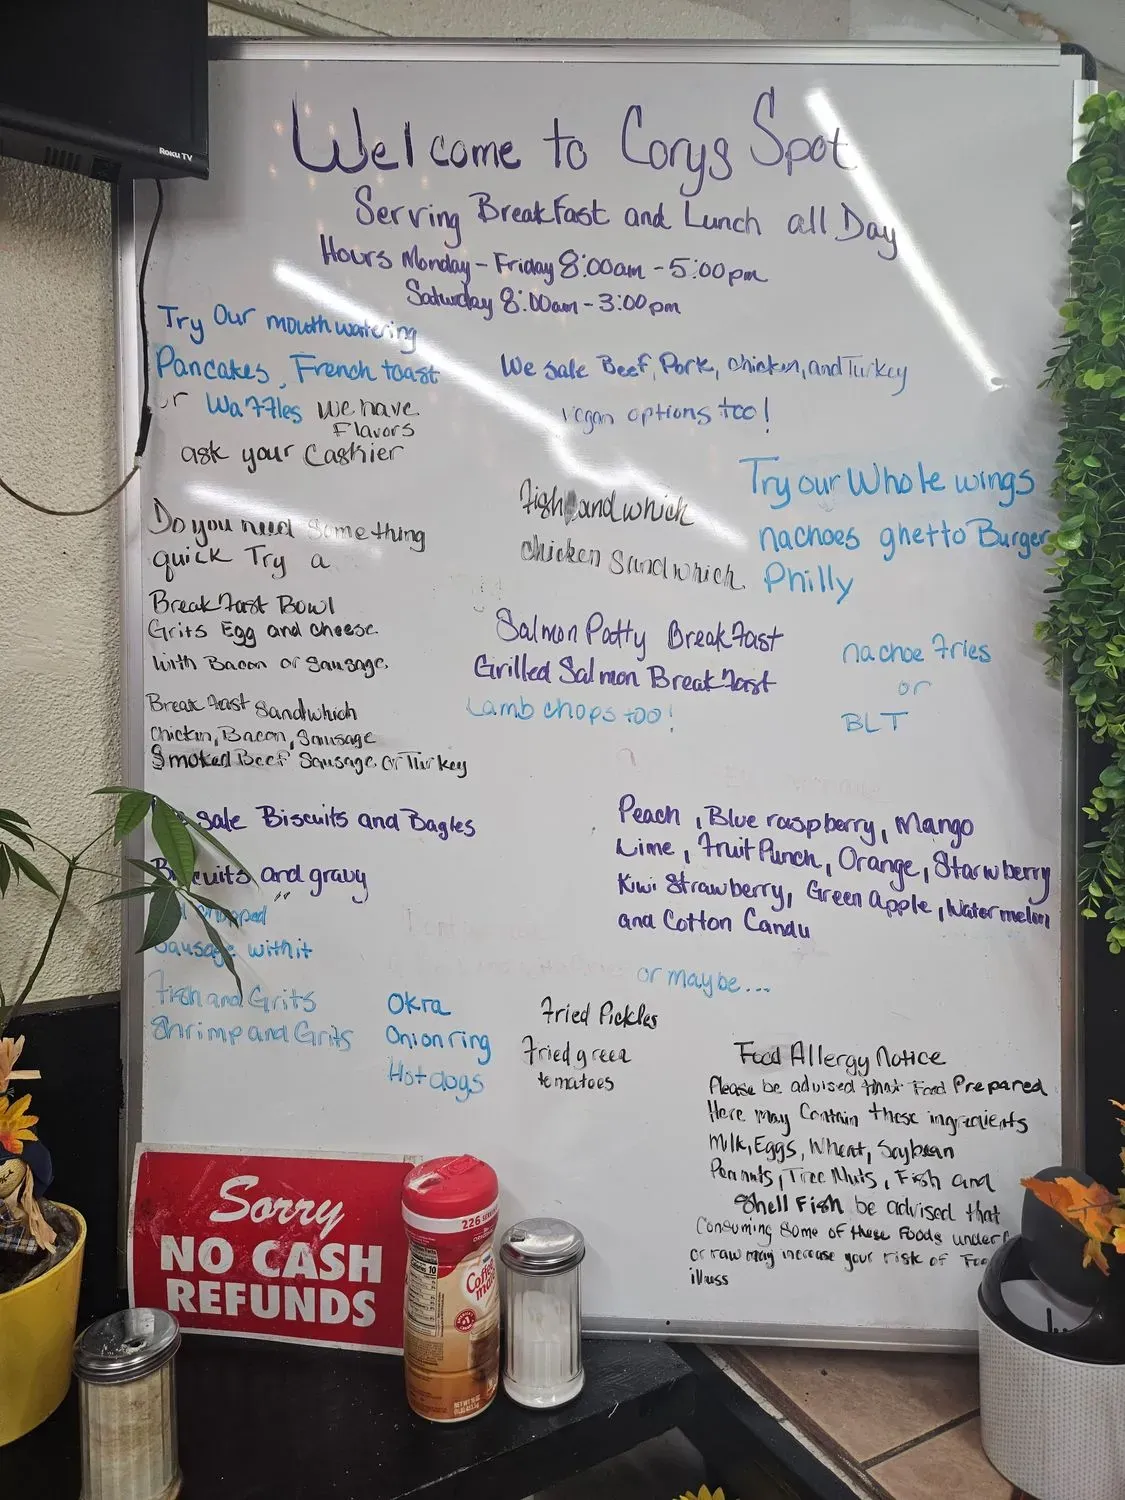 ROKU TV
Welcome to Corys Spot
Serving Breakfast and Lunch all Day
Hours Monday - Friday 8:00am - 5:00pm
Saturday 8:00am - 3:00pm
Try Our mouth watering
Pancakes, French toast
or Waffles we have
Flavors
ask your Cashier
We sale Beef, Pork, chicken, and Turkey
vegan options too!
Do you need something
quick Try a
Breakfast Bowl
Grits Egg and cheese
with Bacon or Sausage
Breakfast Sandwhich
Chicken, Bacon, Sausage
Smoked Beef Sausage or Turkey
Fish andwhich
chicken Sandwhich
Try our Whole wings
nachoes ghetto Burger
Philly
Salmon Patty Breakfast
Grilled Salmon Breakfast
Lamb chops too!
nachoe Fries
or
BLT
sale Biscuits and Bagles
Biscuits and gravy
chopped
Sausage with it
Fish and Grits
Shrimp and Grits
Okra
Onion ring
Hotdogs
Peach, Blue raspberry, Mango
Lime, Fruit Punch, Orange, Starwberry
Kiwi Strawberry, Green Apple, Watermelon
and Cotton Candy
or maybe...
Fried Pickles
Fried green
tomatoes
Food Allergy Notice
Please be advised that Food Prepared
Here may Contain these ingredients
Milk, Eggs, Wheat, Soybean
Peanuts, Tree Nuts, Fish and
Shell Fish be advised that
Consuming Some of these Foods under
or raw may increase your risk of
illness
Sorry
NO CASH
REFUNDS
226
Coffee mate